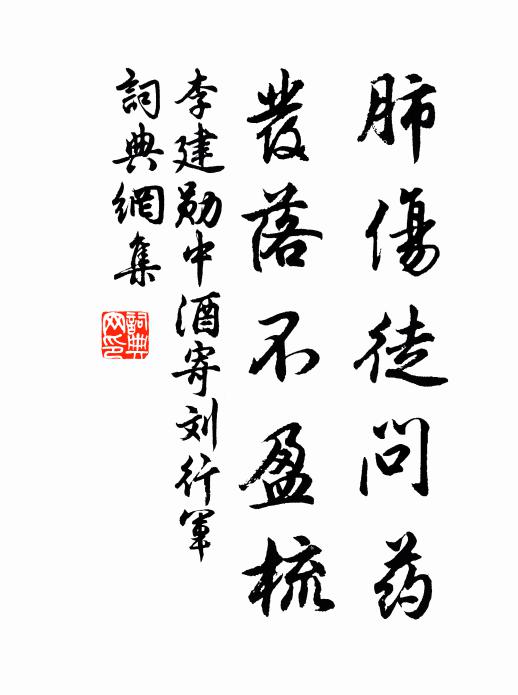 肺傷徒問药
發落不盈梳
李建勋中酒寄刘行軍
詞典網集
詞典网印